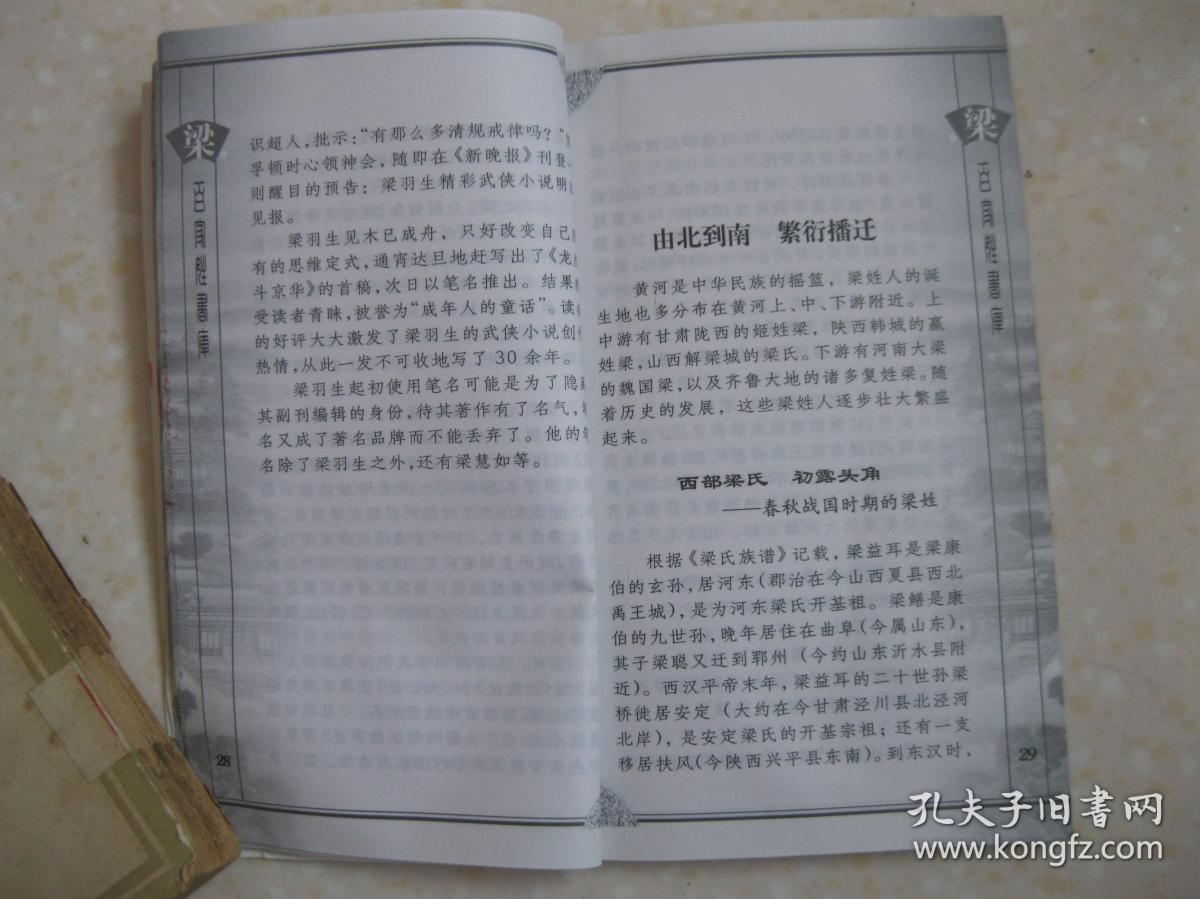 梁
百家姓书库
识超人,批示:“有那么多清规戒律吗?”
孚顿时心领神会,随即在《新晚报》刊登
则醒目的预告:梁羽生精彩武侠小说明
见报。
梁羽生见木已成舟,只好改变自己
有的思维定式,通宵达旦地赶写出了《龙
斗京华》的首稿,次日以笔名推出。结果
受读者青睐,被誉为“成年人的童话”。读
的好评大大激发了梁羽生的武侠小说创
热情,从此一发不可收地写了30余年。
梁羽生起初使用笔名可能是为了隐
其副刊编辑的身份,待其著作有了名气,
名又成了著名品牌而不能丢弃了。他的
名除了梁羽生之外,还有梁慧如等。
28
由北到南 繁衍播迁
黄河是中华民族的摇篮,梁姓人的诞
生地也多分布在黄河上、中、下游附近。上
中游有甘肃陇西的姬姓梁,陕西韩城的嬴
姓梁,山西解梁城的梁氏。下游有河南大梁
的魏国梁,以及齐鲁大地的诸多复姓梁。随
着历史的发展,这些梁姓人逐步壮大繁盛
起来。
西部梁氏 初露头角
——春秋战国时期的梁姓
根据《梁氏族谱》记载,梁益耳是梁康
伯的玄孙,居河东(郡治在今山西夏县西北
禹王城),是为河东梁氏开基祖。梁鳝是康
伯的九世孙,晚年居住在曲阜(今属山东),
其子梁聪又迁到郓州(今约山东沂水县附
近)。西汉平帝末年,梁益耳的二十世孙梁
桥徙居安定(大约在今甘肃泾川县北泾河
北岸),是安定梁氏的开基宗祖;还有一支
移居扶风(今陕西兴平县东南)。到东汉时,
梁
百家姓书库
29
孔夫子旧书网
www.kongfz.com